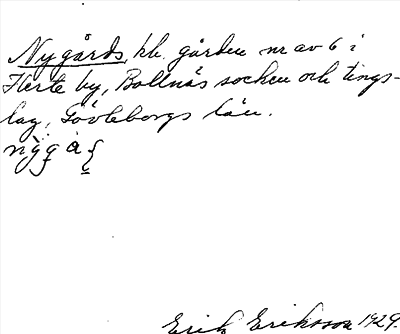 Nygårds, kk. gården nr av 6 i
Herte by, Bollnäs socken och tings-
lag, Gävleborgs län.
Erik Eriksson 1929.